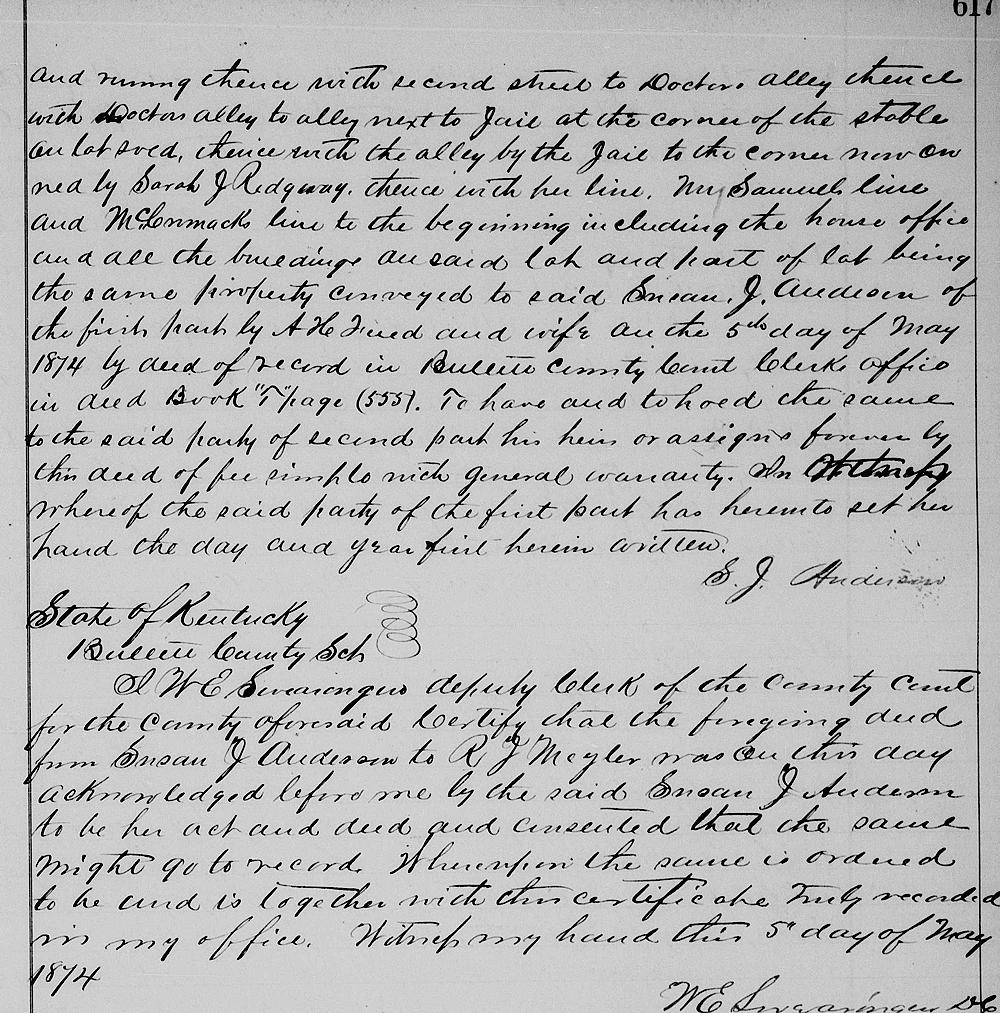 617
and runing thence with second street to Doctors alley thence
with Doctors alley to alley next to Jail at the corner of the stable
on lot sved, thence with the alley by the Jail to the corner now ow
ned by Sarah J Ridgway. thence with her line, Mrs Samuels line
and McCormacks line to the beginning including the house office
and all the buildings on said lot and part of lot being
the same property conveyed to said Susan. J. Anderson of
the first part by A H and wife on the 5th day of May
1874 by deed of record in Bullitt County Court Clerks office
in deed Book "T" page (555). To have and to hold the same
to the said party of second part his heirs or assigns forever by
this deed of fee simple with general warranty. In
Whereof the said party of the first part has hereunto set her
hand the day and year first herein written.
S. J. Anderson
State of Kentucky
Bullitt County Sct
I W E Swearengen deputy Clerk of the County Court
for the County aforesaid Certify that the foregoing deed
from Susan J Anderson to R J Meyler was on this day
acknowledged before me by the said Susan J Anderson
to be her act and deed and consented that the same
might go to record. Whereupon the same is ordered
to be and is together with this certificate truly recorded
in my office. Witness my hand this 5" day of May
1874
W E Swearingen DC